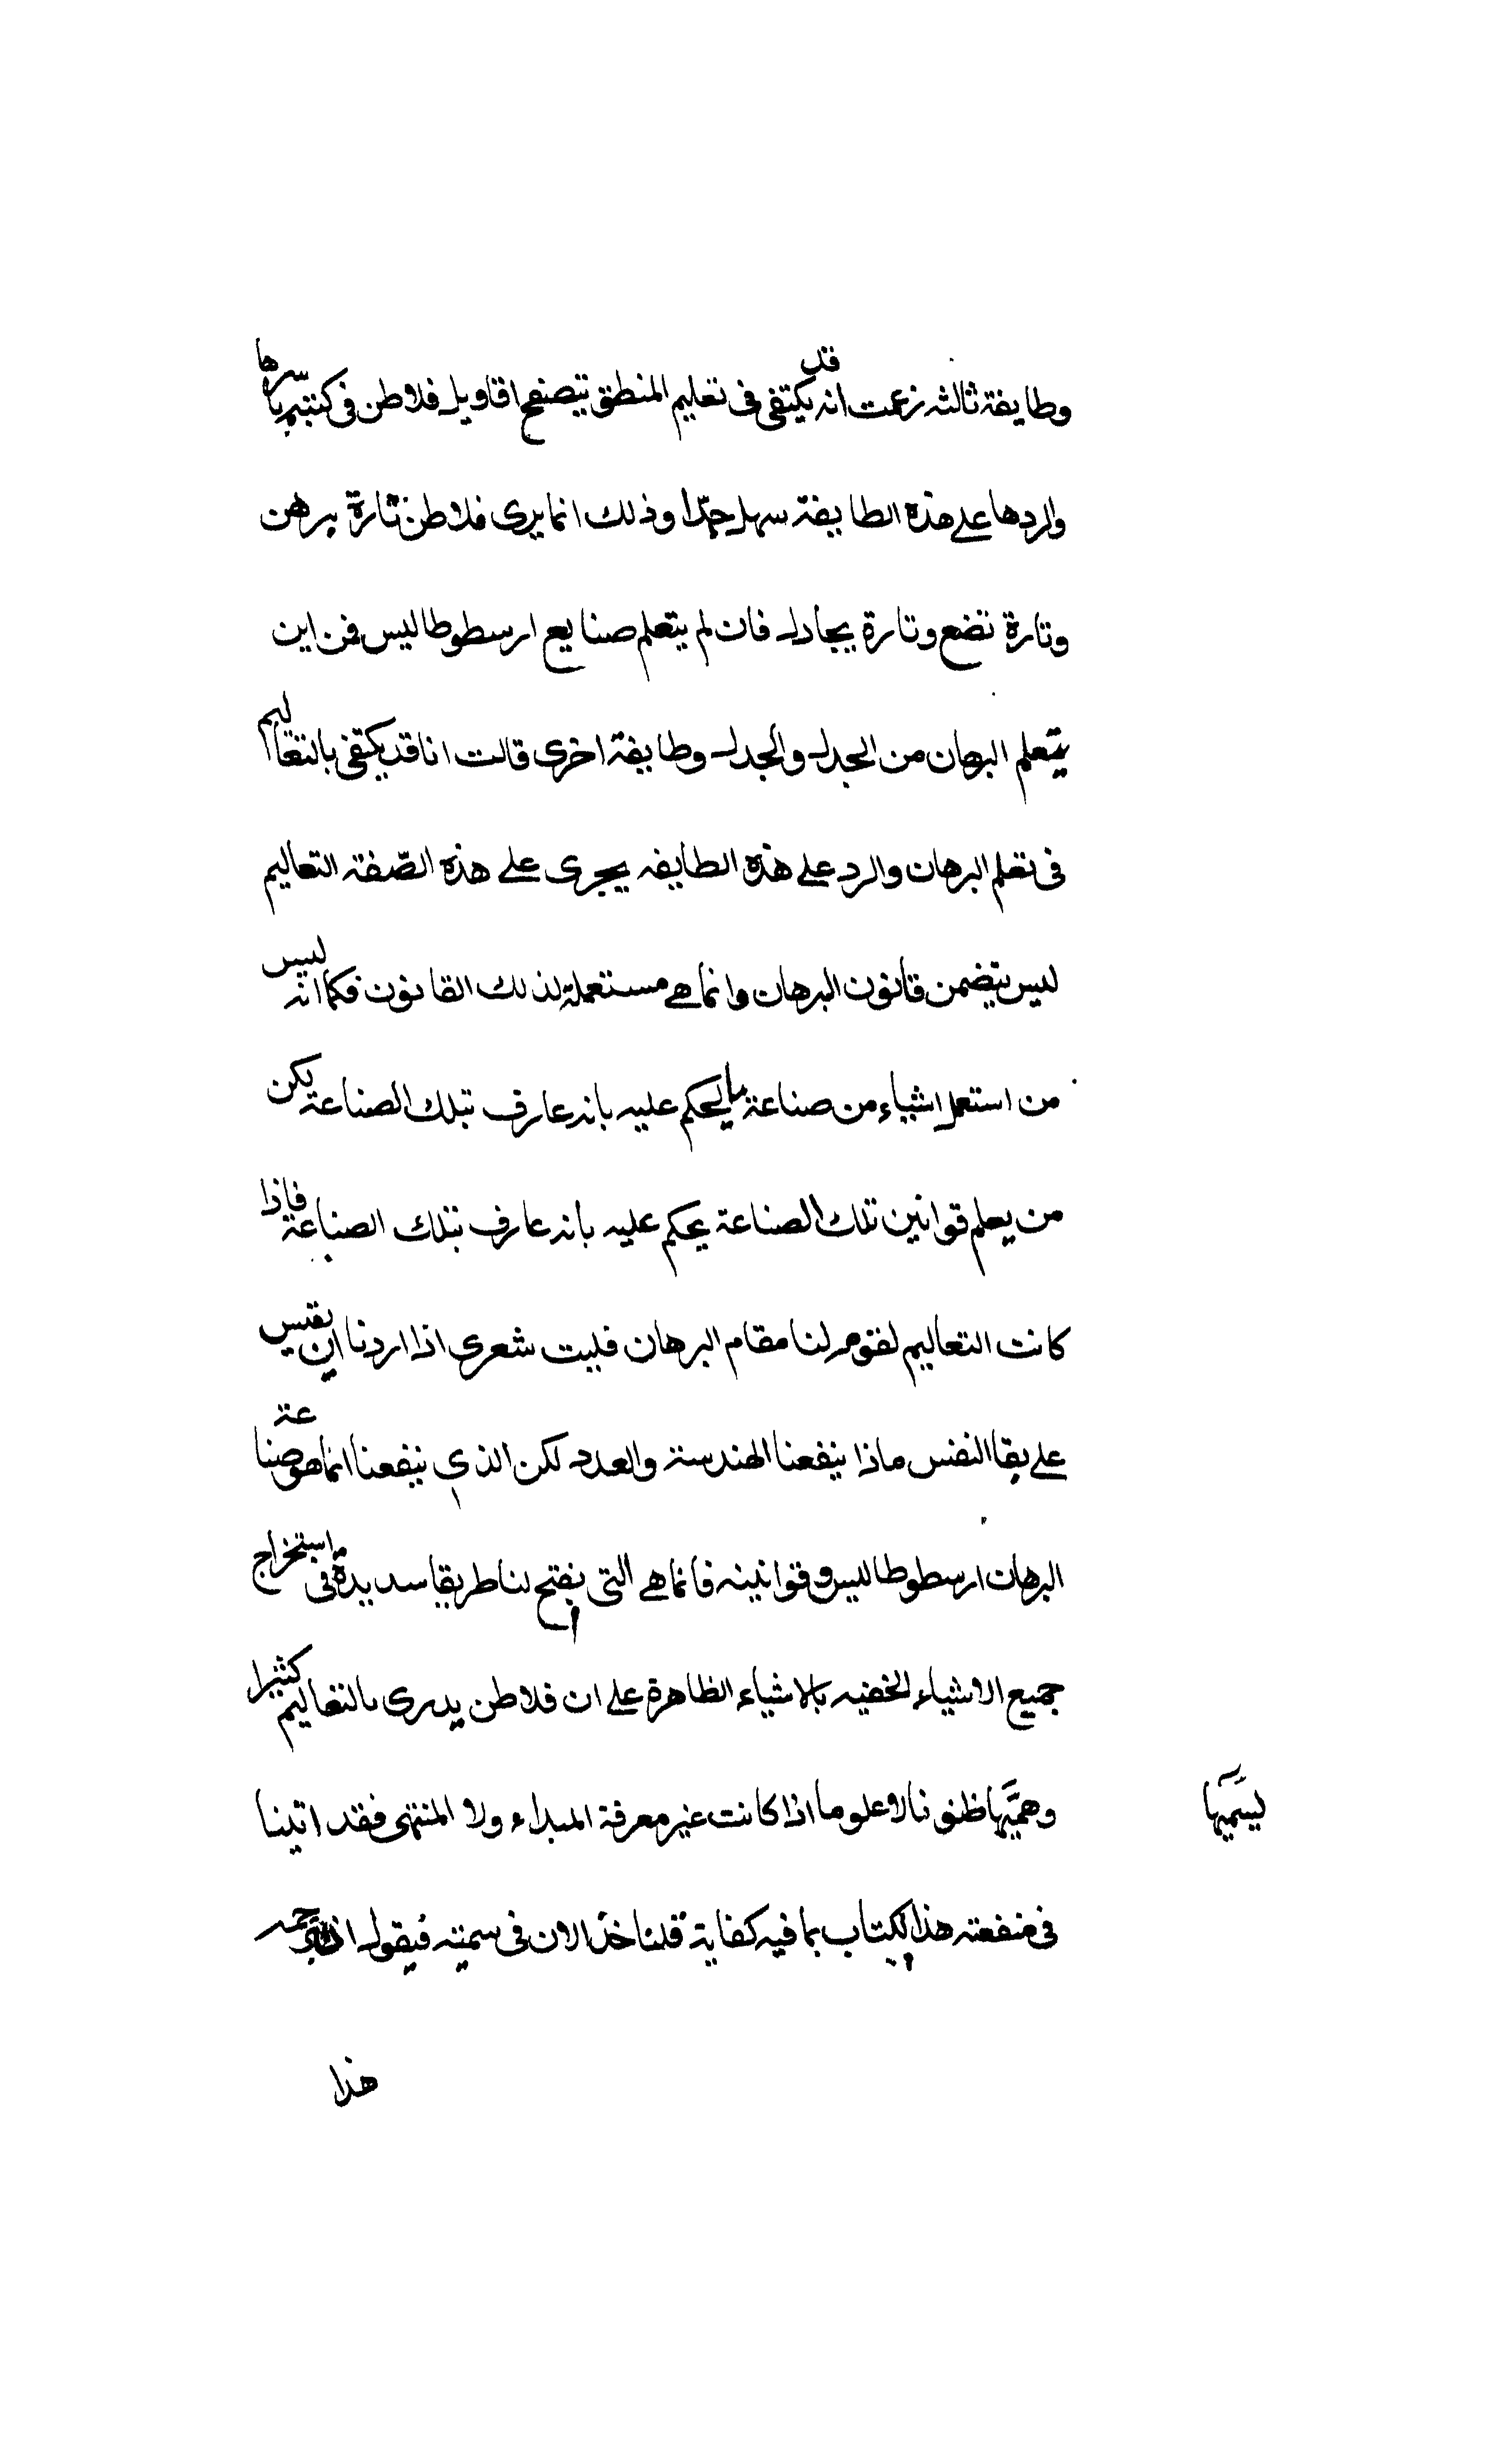 وطايفة ثالثه زعمت انه قد يكتفى فى تعليم المنطق بتصفح اقاويل فلاطن فى كتبه باسرها
والردها على هذه الطايفة سهل جدّا وذلك انما يرى فلاطن تارة يبرهن
وتارة تضع وتارة يجادل فان لم يتعلم صنايع ارسطوطاليس فمن اين
يتعلم البرهان من الجدل والجدل وطايفة اخرى قالت انا قد يكتفى بالتعاليم
فى تعلم البرهان والرد على هذه الطايفه يجرى على هذه الصّفة التعاليم
ليس يتضمن قانون البرهان وانما هى مستعملة لذلك القانون فكما انه ليس
من استعمل اشياء من صناعة ما يحكم عليه بانه عارف بتلك الصناعة لكن
من يعلم قوانين تلك الصناعة يحكم عليه بانه عارف بتلك الصناعة فاذا
كانت التعاليم لفقوم لنا مقام البرهان فليت شعرى اذا اردنا ان نقيس
على بقا النفس ماذا ينفعنا الهندسة والعدد لكن الذى ينفعنا انما هو صناعة
البرهان ارسطوطاليس وقوانينه فانما هى التى يفتح لنا طريقا سديدة فى استخراج
جميع الاشياء الخفيه بالاشياء الظاهرة على ان فلاطن يدرى بالتعاليم كثيرا
وهميّها ظنونا لا علوما اذا كانت غير معرفة المبداء ولا المنتهى فقد اتينا
يسَمّيها
فى منفعته هذا الكتاب بما فيه كفاية قلنا خذ الان فى سمته فيقول ان ترجمه
هذا